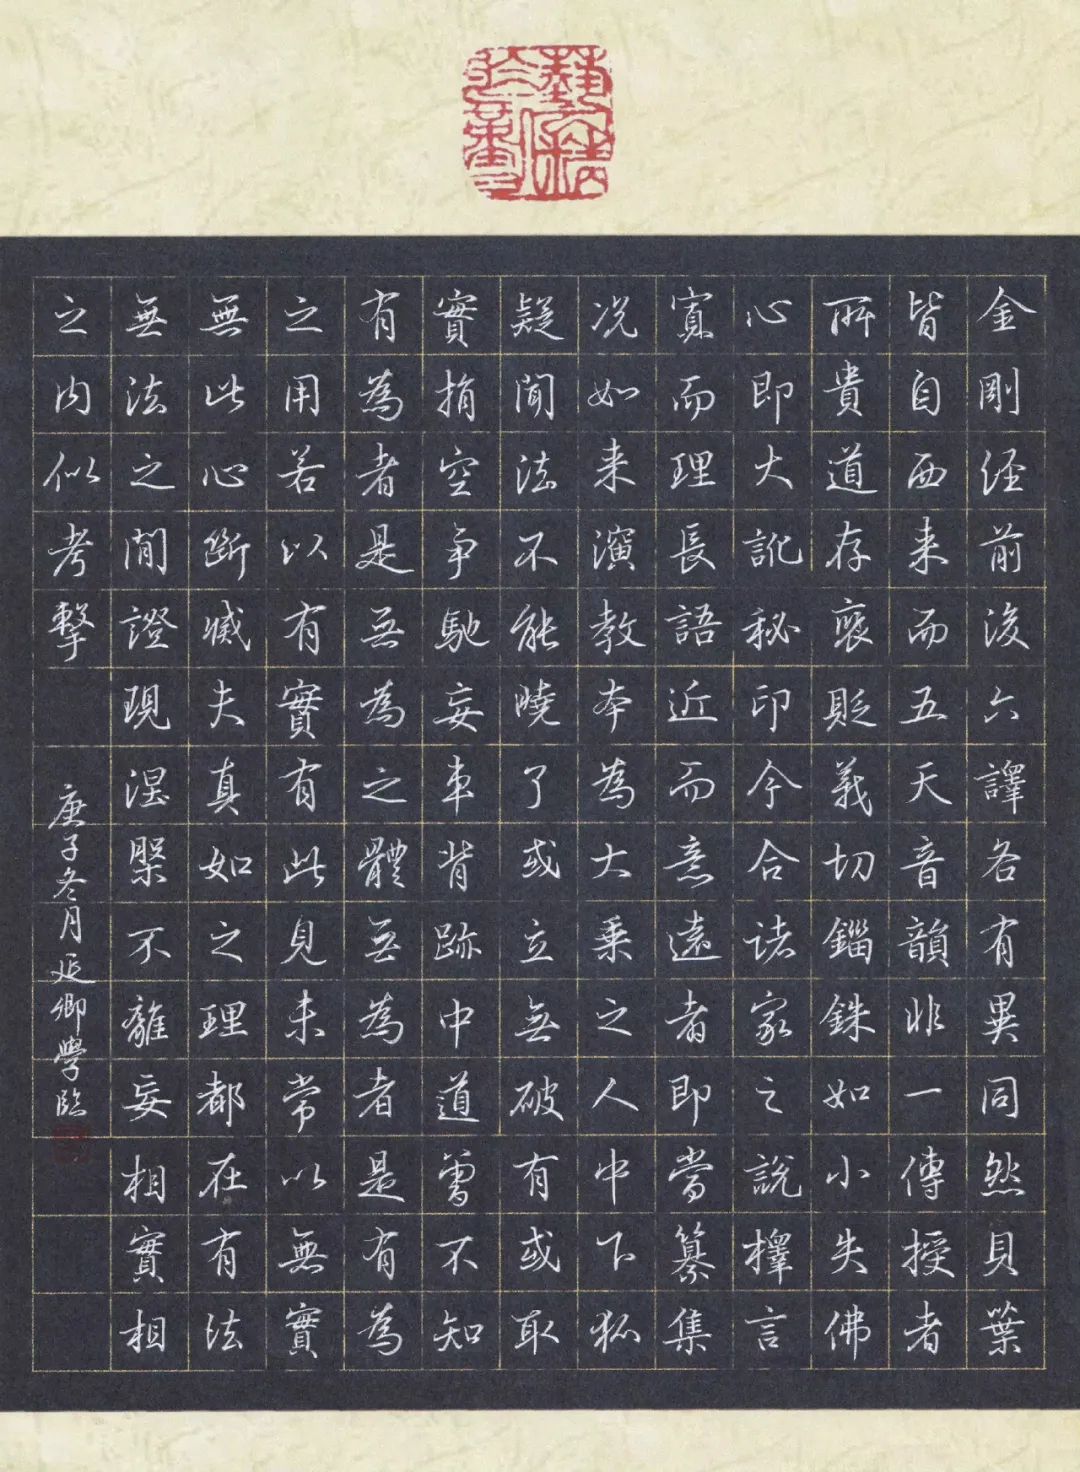 金剛經前後六譯各有異同然貝葉
皆自西来而五天音韻非一傳授者
所貴道存褒貶義切錙銖如小失佛
心即大訛秘印今合諸家之說擇言
寡而理長語近而意遠者即當纂集
况如来演教本為大乗之人中下狐
疑聞法不能曉了或立無破有或取
實捐空争馳妄車背跡中道曾不知
有為者是無為之體無為者是有為
之用若以有實有此見未常以無實
無此心斷臧夫真如之理都在有法
無法之間證現涅槃不離妄相實相
之内似考擊
庚子冬月延卿學臨